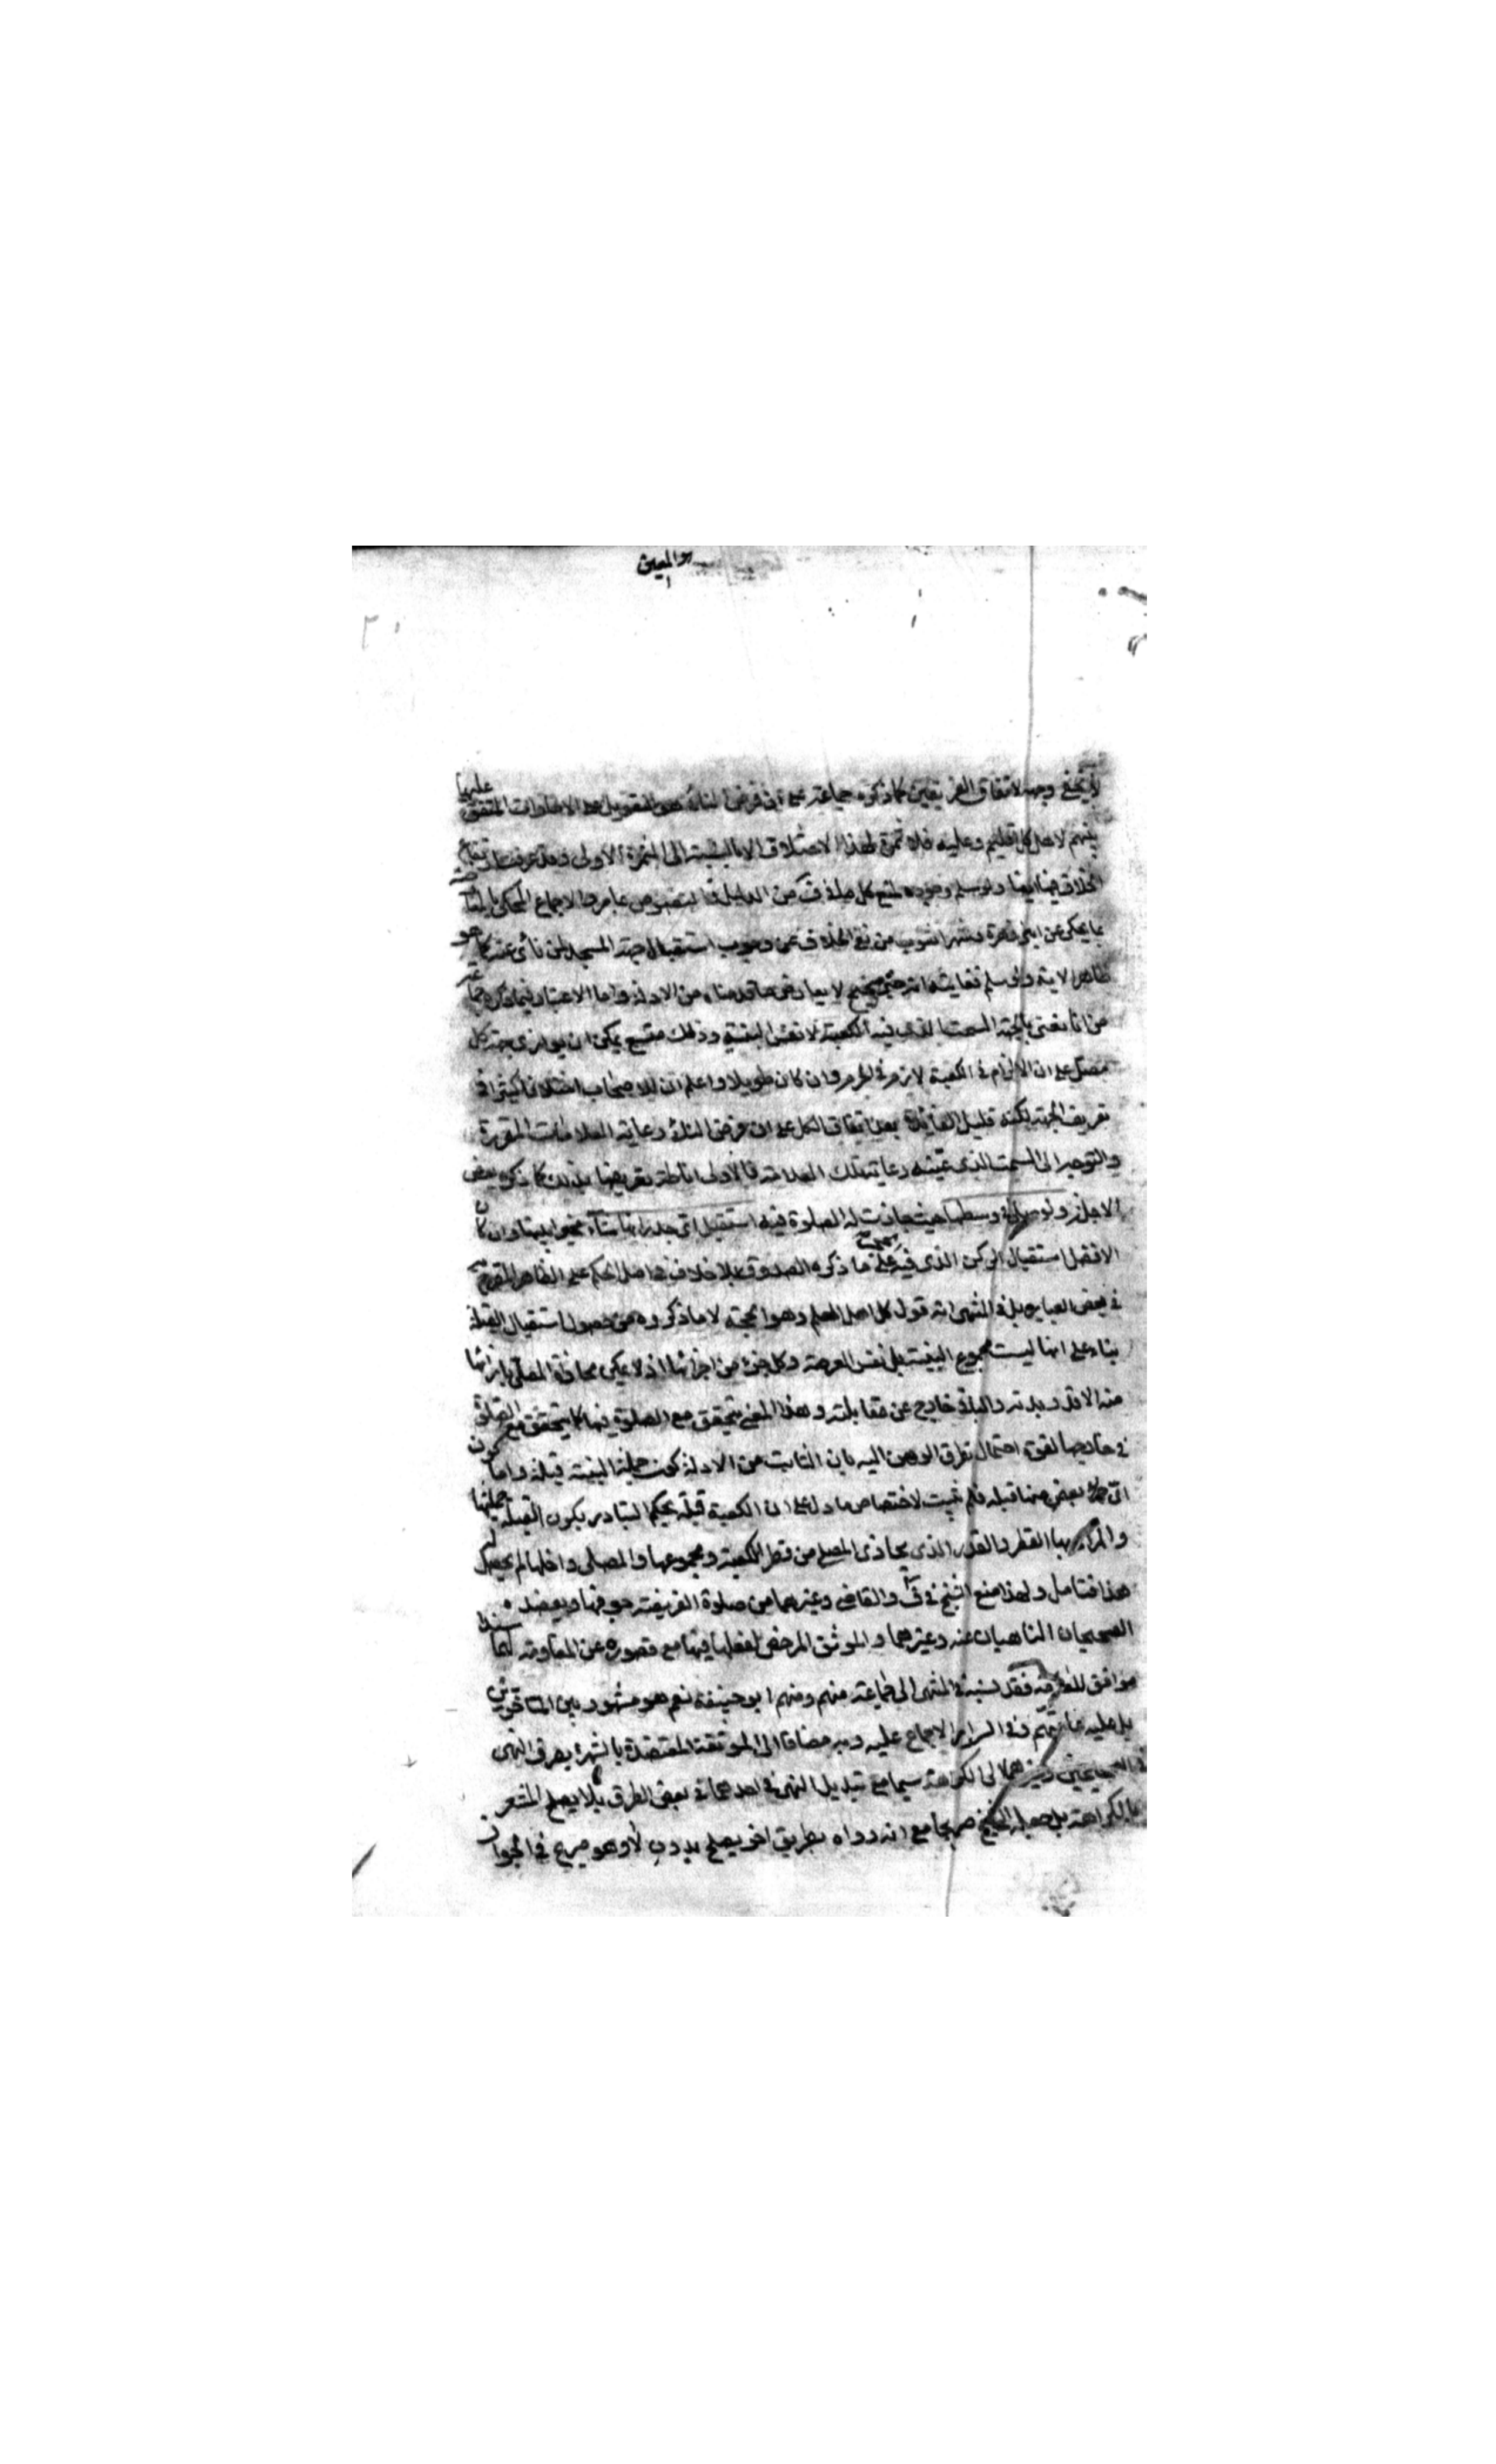 هو المعين
لا يخفى وجهه لاتفاق الفريقين كما ذكره جماعة على ان فرض النائي هو التعويل على الامارات المتفق عليها
بينهم لاهل كل اقليم وعليه فلا ثمرة لهذا الاختلاف الا بالنسبة الى الثمرة الاولى وقد عرفت
الخلاف فيها ايضا ولو سلم وجوده لمنع كل ما في ف من الدليل فالنصوص بما مر والاجماع المحكي
بما يحكى عن ابني زهرة وشهرآشوب من نفي الخلاف عن وجوب استقبال جهة المسجد لمن نأى عنه كما هو
ظاهر الاية ولو سلم فغايته انه صحيح لا يعارض ما قدمناه من الادلة واما الاعتبار فبما ذكره جماعة
من انا نعني بالجهة السمت الذي فيه الكعبة لا نفس البنية وذلك متسع يمكن ان يوازي جهة كل
مصل على ان الالزام في الكعبة لازم في الحرم وان كان طويلا واعلم ان للاصحاب اختلافا كثيرا في
تعريف الجهة لكنه قليل الفائدة بعد اتفاق الكل على ان فرض النائي رعاية العلامات المقررة
والتوجه الى السمت الذي عينته رعاية تلك العلامة فالاولى اناطة تعريفها بذلك كما ذكره بعض
الاجلة ولو صلى في وسطها حيث جازت له الصلوة فيه استقبل اي جدرانها شاء مخيرا بينها وان كان
الافضل استقبال الركن الذي فيه الحجر على ما ذكره الصدوق بلا خلاف في اصل الحكم على الظاهر المصرح به
في بعض العبائر بل في المنتهى انه قول كل اهل العلم وهو الحجة لا ما ذكروه من حصول استقبال القبلة
بناء على انها ليست مجموع البنية بل نفس العرصة وكل جزء من اجزائها اذ لا يمكن محاذاة المصلي بازائها
منه الا قدر بدنه والباقي خارج عن مقابلته وهذا المعنى يتحقق مع الصلوة فيها كما يتحقق مع الصلوة
في خارجها لقوة احتمال تطرق الوهن اليه بان الثابت من الادلة كون جملة البنية قبلة واما كون
اي جزء بعض منها قبلة فلم يثبت لاختصاص ما دل على ان الكعبة قبلة بحكم التبادر بكون القبلة جملتها
والمراد بها القطر والقدر الذي يحاذي المصلي من قطر الكعبة ومجموعها والمصلي داخلها لم يحصل له
هذا فتامل ولهذا منع الشيخ في ف والقاضي وغيرهما من صلوة الفريضة جوفها ويعضده
الصحيحان الناهيان عنه وغيرهما والموثق المرخص لفعلها فيها مع قصوره عن المقاومة لهما سندا
موافق للعامة فقد نسبه في المنتهى الى جماعة منهم ومنهم ابو حنيفة نعم هو مشهور بين المتاخرين
بل عليه عامتهم وفي السرائر الاجماع عليه وبه مضافا الى الموثقة المعتضدة بالشهرة يصرف النهي
في الصحيحين وغيرهما الى الكراهة سيما مع تبديل النهي في احدهما في بعض الطرق بلا يصلح المشعر
بالكراهة بل جعله الشيخ صريحا مع انه رواه بطريق اخر يصلح بدون لا وهو صريح في الجواز